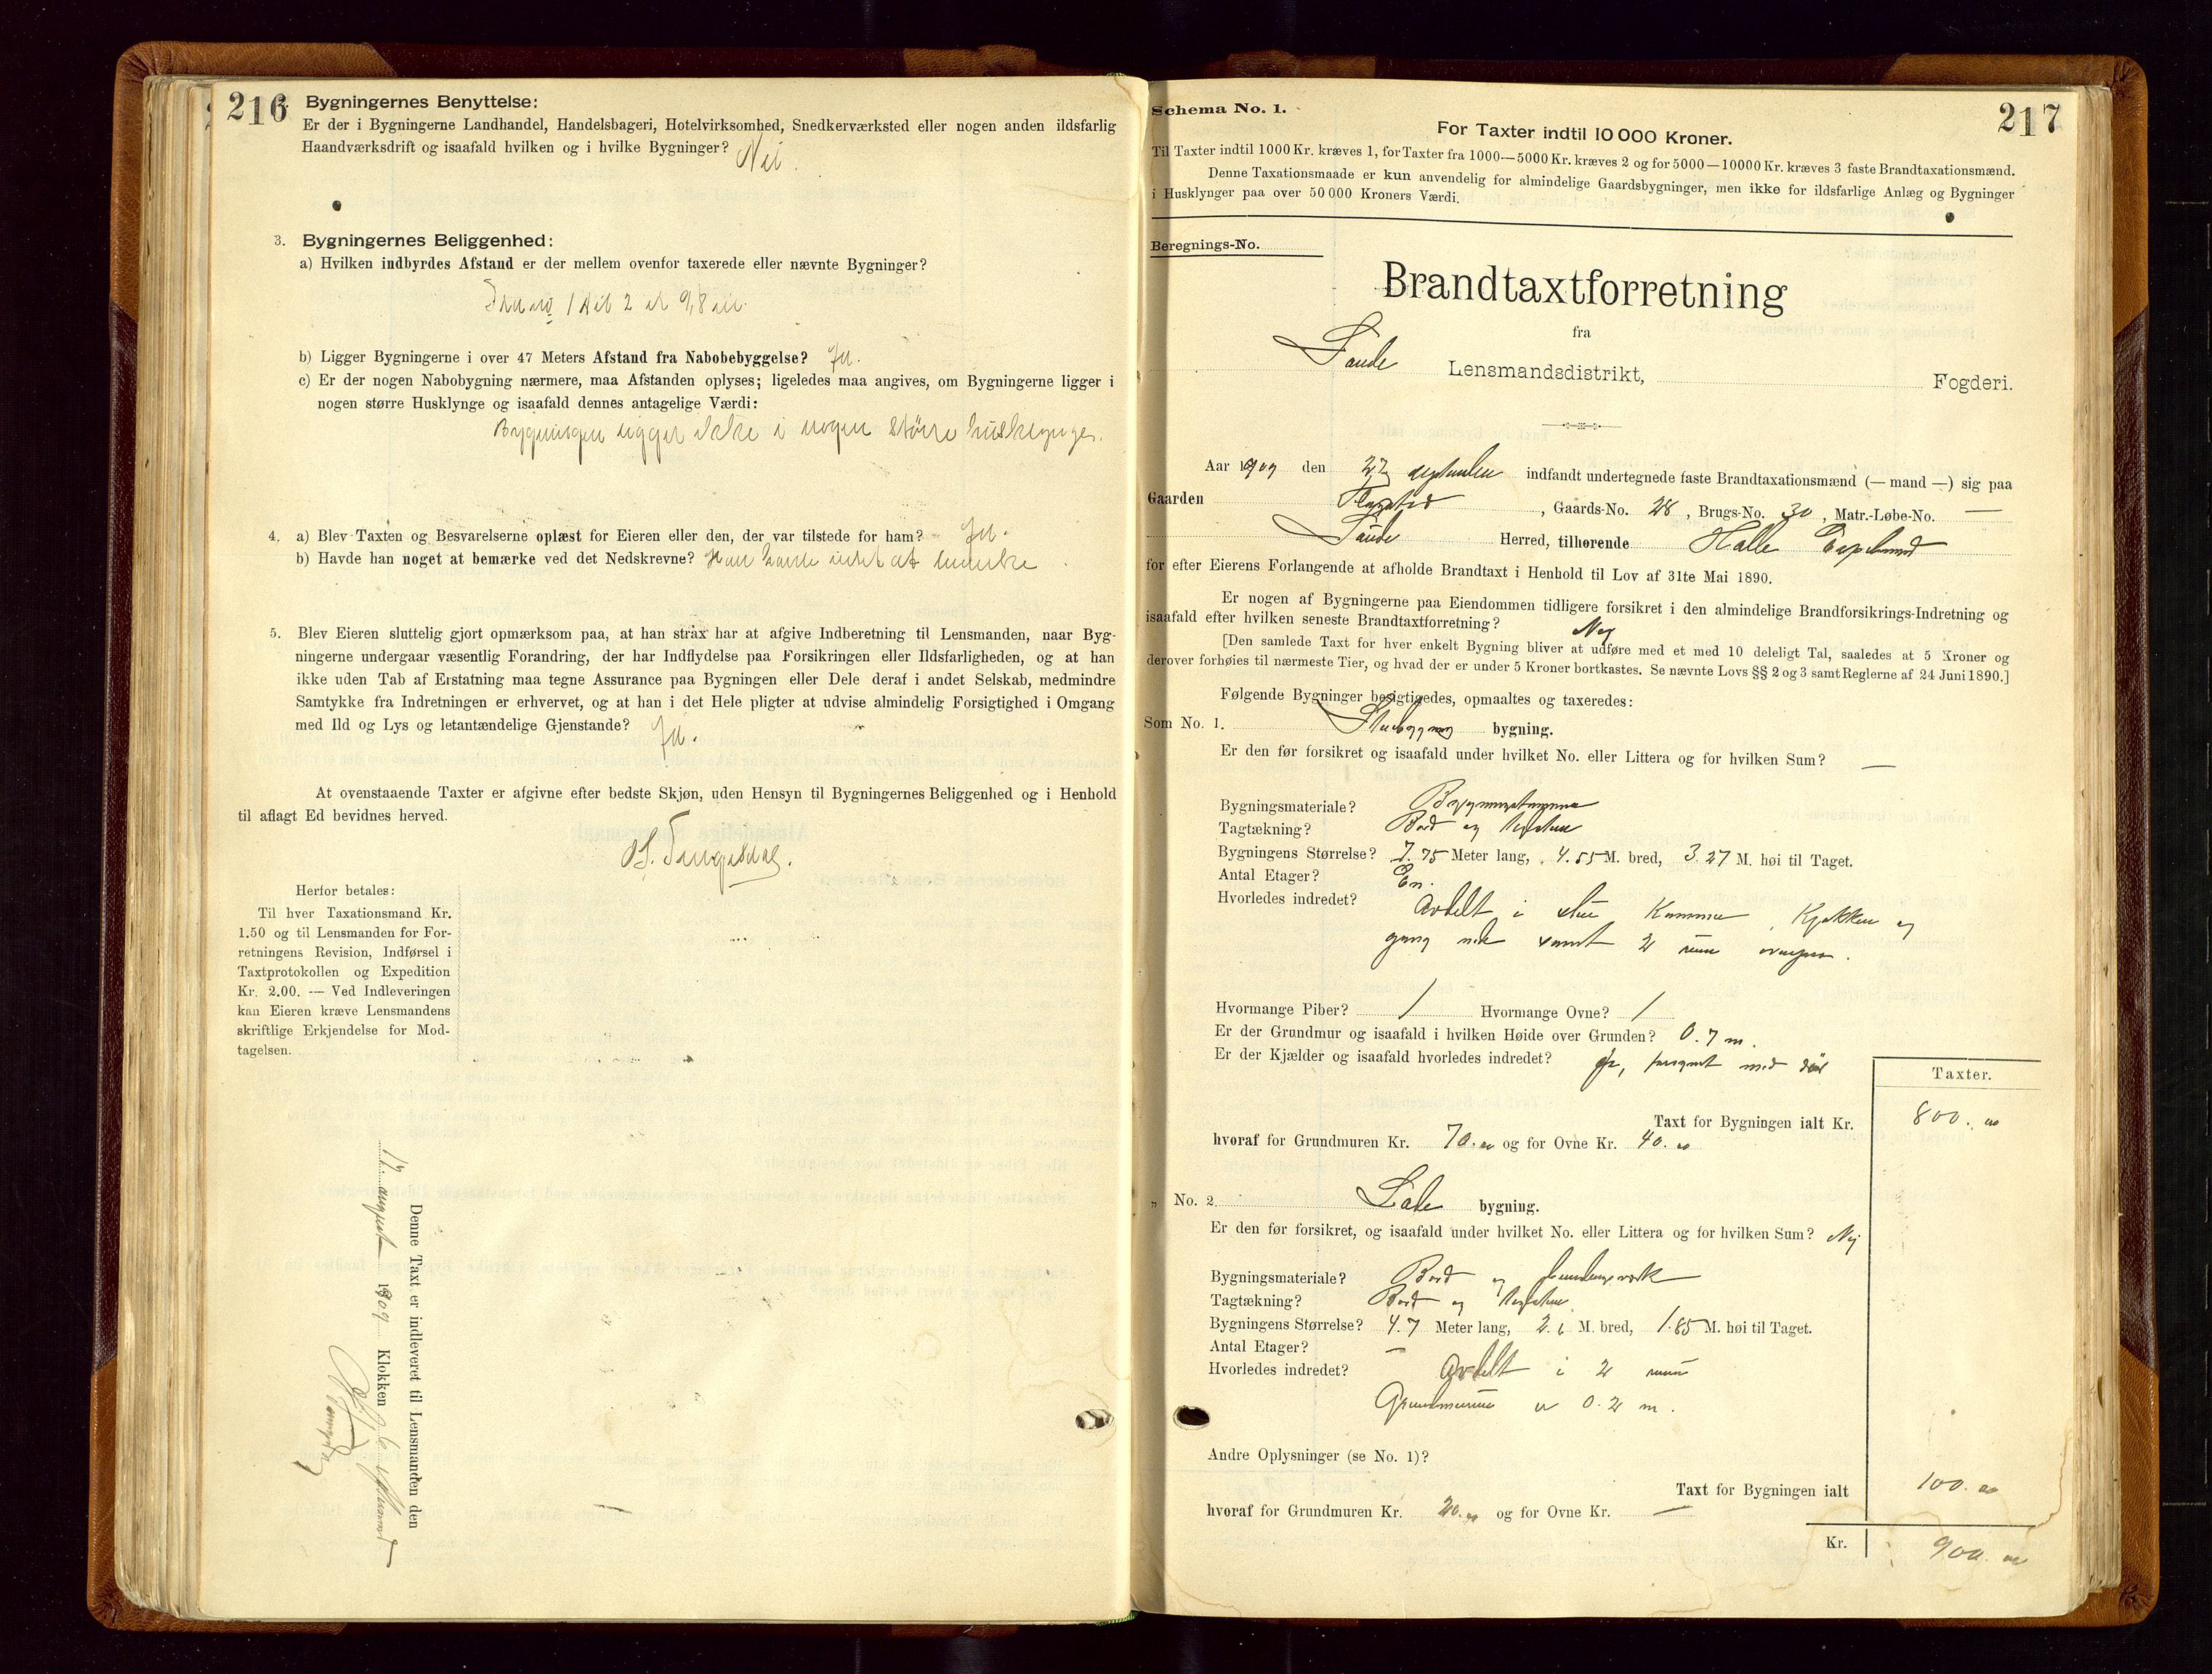 216
Bygningernes Benyttelse:
Er der i Bygningerne Landhandel, Handelsbageri, Hotelvirksomhed, Snedkerværksted eller nogen anden ildsfarlig
Haandværksdrift og isaafald hvilken og i hvilke Bygninger? Nei.
3. Bygningernes Beliggenhed:
a) Hvilken indbyrdes Afstand er der mellem ovenfor taxerede eller nævnte Bygninger?
1 til 2 er 9,8 m.
b) Ligger Bygningerne i over 47 Meters Afstand fra Nabobebyggelse? Ja.
c) Er der nogen Nabobygning nærmere, maa Afstanden oplyses; ligeledes maa angives, om Bygningerne ligger i
nogen større Husklynge og isaafald dennes antagelige Værdi:
Bygningen ligger ikke i nogen større husklynge.
4. a) Blev Taxten og Besvarelserne oplæst for Eieren eller den, der var tilstede for ham? Ja.
b) Havde han noget at bemærke ved det Nedskrevne? Han havde intet at bemerke.
5. Blev Eieren sluttelig gjort opmærksom paa, at han strax har at afgive Indberetning til Lensmanden, naar Byg-
ningerne undergaar væsentlig Forandring, der har Indflydelse paa Forsikringen eller Ildsfarligheden, og at han
ikke uden Tab af Erstatning maa tegne Assurance paa Bygningen eller Dele deraf i andet Selskab, medmindre
Samtykke fra Indretningen er erhvervet, og at han i det Hele pligter at udvise almindelig Forsigtighed i Omgang
med Ild og Lys og letantændelige Gjenstande? Ja.
At ovenstaaende Taxter er afgivne efter bedste Skjøn, uden Hensyn til Bygningernes Beliggenhed og i Henhold
til aflagt Ed bevidnes herved.
Herfor betales:
Til hver Taxationsmand Kr.
1.50 og til Lensmanden for For-
retningens Revision, Indførsel i
Taxtprotokollen og Expedition
Kr. 2.00. — Ved Indleveringen
kan Eieren kræve Lensmandens
skriftlige Erkjendelse for Mod-
tagelsen.
Denne Taxt er indleveret til Lensmanden den
17 august 1909 Klokken 6
217
Schema No. 1.
For Taxter indtil 10 000 Kroner.
Til Taxter indtil 1000 Kr. kræves 1, for Taxter fra 1000—5000 Kr. kræves 2 og for 5000—10000 Kr. kræves 3 faste Brandtaxationsmænd.
Denne Taxationsmaade er kun anvendelig for almindelige Gaardsbygninger, men ikke for ildsfarlige Anlæg og Bygninger
i Husklynger paa over 50 000 Kroners Værdi.
Beregnings-No.
Brandtaxtforretning
fra
Saude Lensmandsdistrikt, Fogderi.
Aar 1909 den 27 september indfandt undertegnede faste Brandtaxationsmænd (— mand —) sig paa
Gaarden , Gaards-No. 28, Brugs-No. 30, Matr.-Løbe-No. —
Saude Herred, tilhørende Halle
for efter Eierens Forlangende at afholde Brandtaxt i Henhold til Lov af 31te Mai 1890.
Er nogen af Bygningerne paa Eiendommen tidligere forsikret i den almindelige Brandforsikrings-Indretning og
isaafald efter hvilken seneste Brandtaxtforretning? Nej
[Den samlede Taxt for hver enkelt Bygning bliver at udføre med et med 10 deleligt Tal, saaledes at 5 Kroner og
derover forhøies til nærmeste Tier, og hvad der er under 5 Kroner bortkastes. Se nævnte Lovs §§ 2 og 3 samt Reglerne af 24 Juni 1890.]
Følgende Bygninger besigtigedes, opmaaltes og taxeredes:
Som No. 1. Stuebygning bygning.
Er den før forsikret og isaafald under hvilket No. eller Littera og for hvilken Sum? —
Bygningsmateriale? Bygningstømmer
Tagtækning? Bord og
Bygningens Størrelse? 7.75 Meter lang, 4.55 M. bred, 3.27 M. høi til Taget.
Antal Etager? En.
Hvorledes indredet? Avdelt i stue Kammer, Kjøkken og
gang ned samt 2 rum ovenpaa.
Hvormange Piber? 1 Hvormange Ovne? 1
Er der Grundmur og isaafald i hvilken Høide over Grunden? 0.7 m.
Er der Kjælder og isaafald hvorledes indredet? Ja, forsynet med dør
Taxter.
Taxt for Bygningen ialt Kr. 800.00
hvoraf for Grundmuren Kr. 70.00 og for Ovne Kr. 40.00
„ No. 2 Lade bygning.
Er den før forsikret, og isaafald under hvilket No. eller Littera og for hvilken Sum? Nej
Bygningsmateriale? Bord og bindingsverk
Tagtækning? Bord og
Bygningens Størrelse? 4.7 Meter lang, 2.6 M. bred, 1.85 M. høi til Taget.
Antal Etager? —
Hvorledes indredet? Avdelt i 2 rum
Grundmuren er 0.2 m.
Andre Oplysninger (se No. 1)?
Taxt for Bygningen ialt 100.00
hvoraf for Grundmuren Kr. 20.00 og for Ovne Kr. —
Kr. 900.00